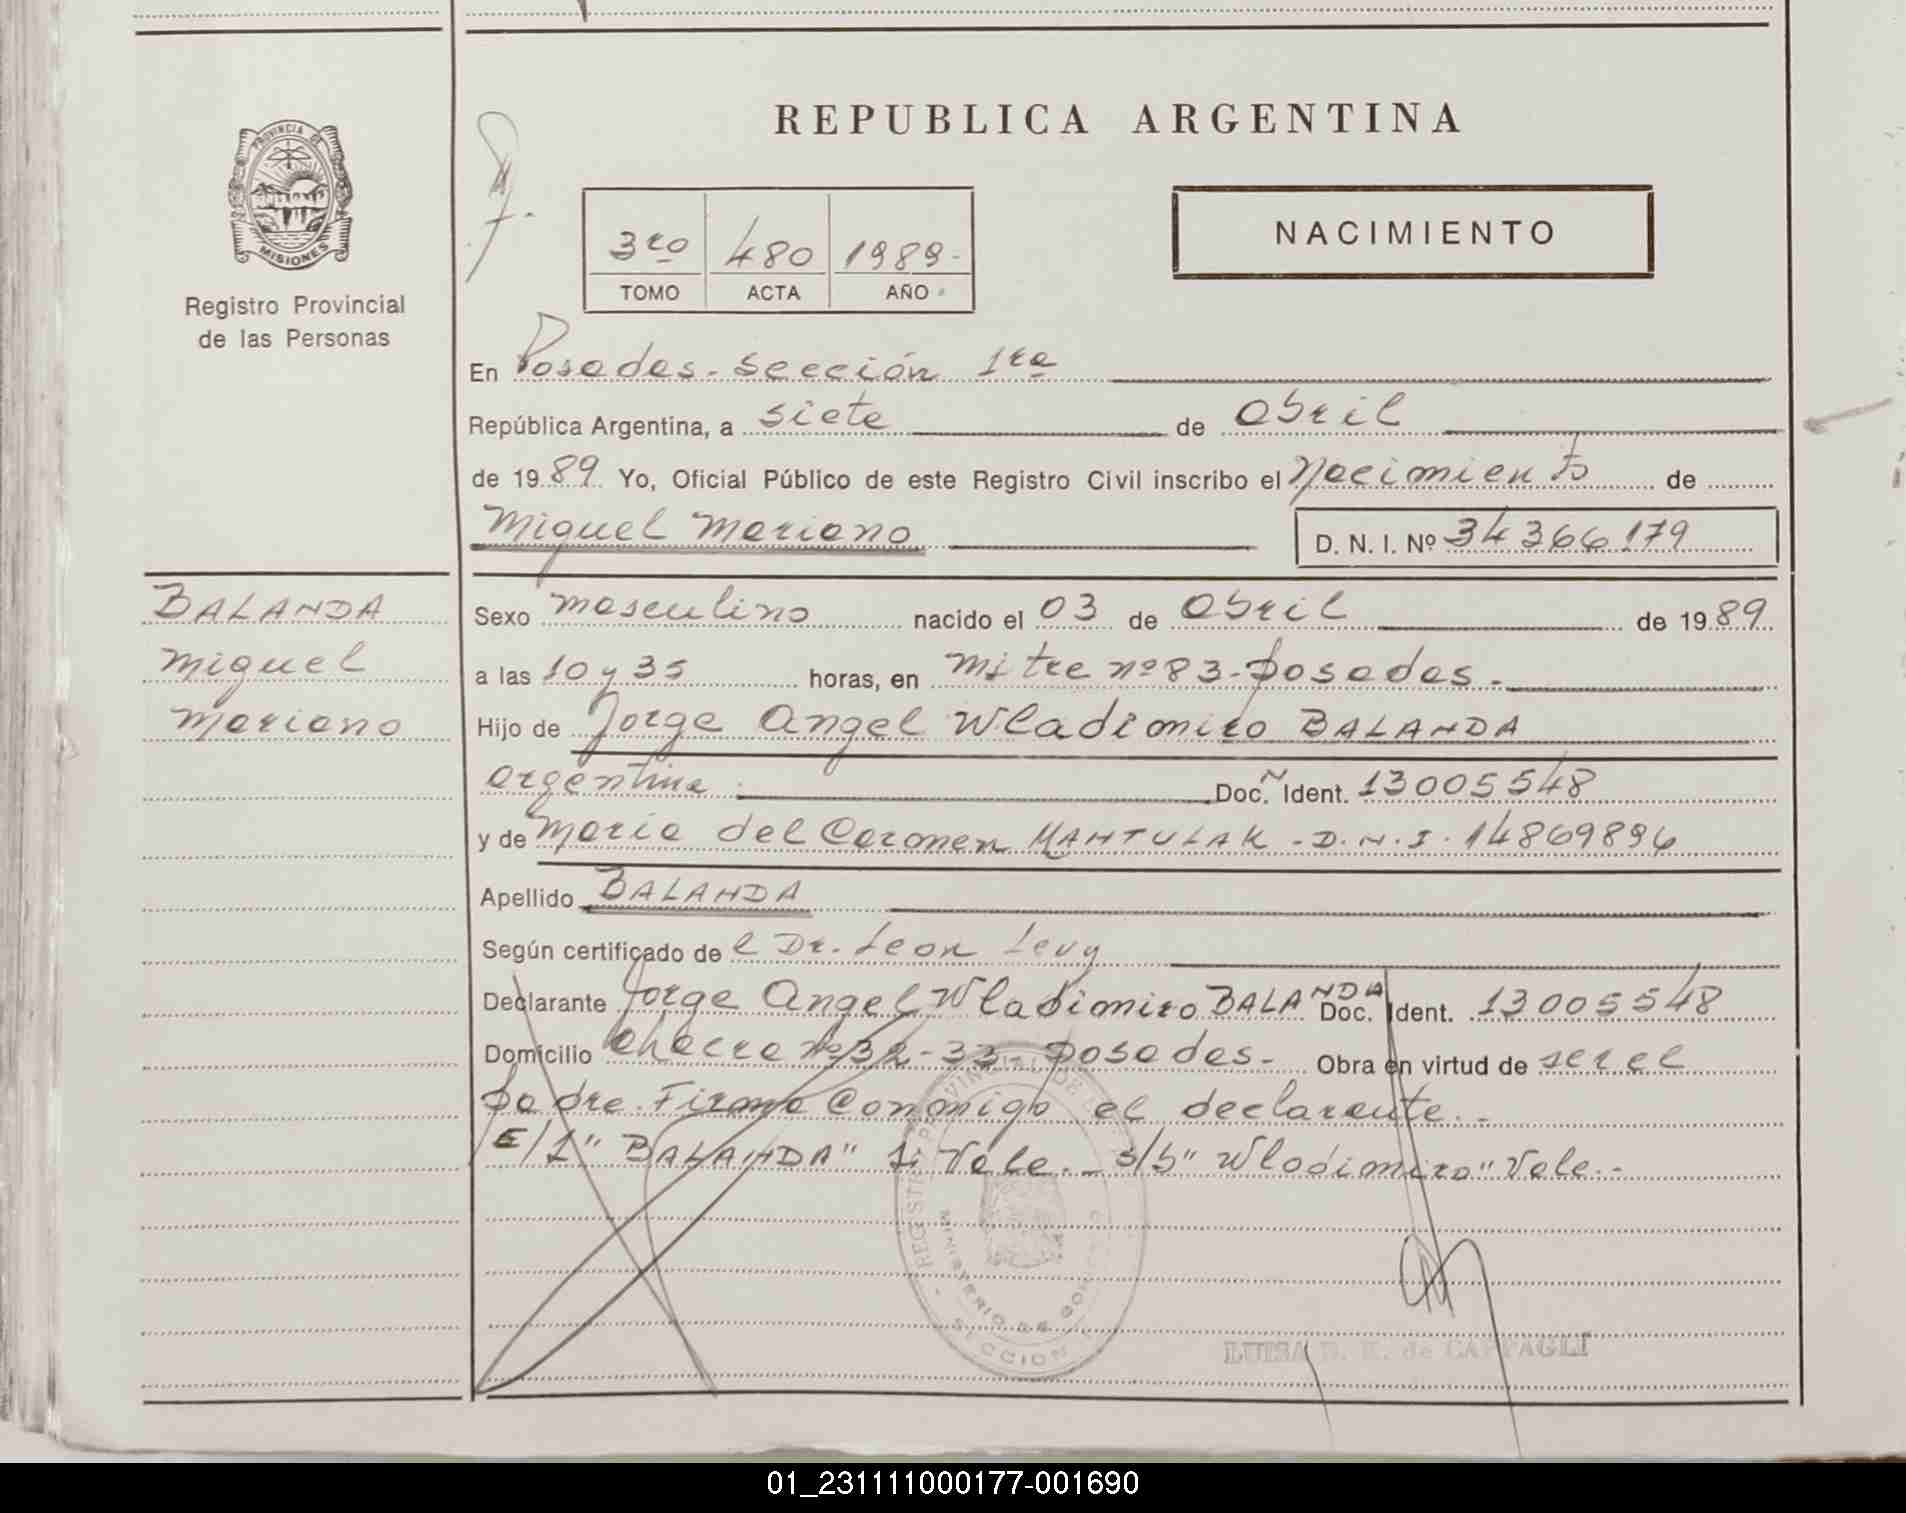 REPUBLICA ARGENTINA
PROVINCIA DE
MISIONES
Registro Provincial
de las Personas
3ro 480 1989.-
TOMO ACTA AÑO
NACIMIENTO
En Posadas - Sección 1ra
República Argentina, a siete de abril
de 1989. Yo, Oficial Público de este Registro Civil inscribo el Nacimiento de
Miguel Mariano D. N. I. Nº 34366179
BALANDA
Miguel
Mariano
Sexo masculino nacido el 03 de abril de 1989.
a las 10 y 35 horas, en Mitre nº 83 - Posadas.-
Hijo de Jorge Angel Wladimiro BALANDA
argentina Doc. Ident. 13005548
y de Maria del Carmen MANTULAK - D.N.I. 14869896
Apellido BALANDA
Según certificado de el Dr. Leon Levy
Declarante Jorge Angel Wladimiro BALANDA Doc. Ident. 13005548
Domicilio Chacra nº 32-33- Posadas- Obra en virtud de ser el
padre. Firma Conmigo el declarante.-
E/L "BALANDA" Si Vale.- S/b "Wladimiro" Vale.-
REGISTRO PROVINCIAL DE
MINISTERIO DE GOBIERNO
SECCION
LUISA de CAPPAGLI
01_231111000177-001690